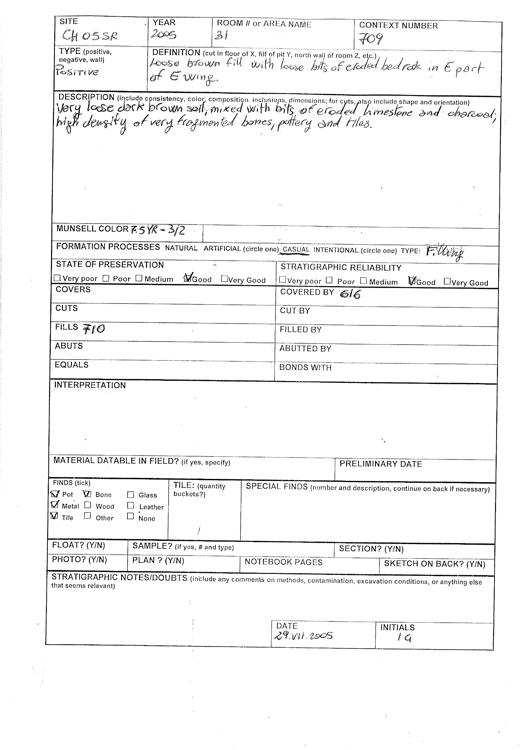 SITE YEAR ROOM # or AREA NAME CONTEXT NUMBER
CH05SR 2005 31 709
TYPE (positive, negative, wall) DEFINITION (cut in floor of X, fill of pit Y, north wall of room Z, etc.)
Positive loose brown fill with loose bits of eroded bedrock in E part
of E wing.
DESCRIPTION (include consistency, color, composition, inclusions, dimensions; for cuts, also include shape and orientation)
Very loose dark brown soil, mixed with bits of eroded limestone and charcoal;
high density of very fragmented bones, pottery and tiles.
MUNSELL COLOR 7.5YR - 3/2
FORMATION PROCESSES NATURAL ARTIFICIAL (circle one) CASUAL INTENTIONAL (circle one) TYPE: Filling
STATE OF PRESERVATION STRATIGRAPHIC RELIABILITY
☐Very poor ☐ Poor ☐ Medium ☑Good ☐Very Good ☐Very poor ☐ Poor ☐ Medium ☑Good ☐Very Good
COVERS COVERED BY 616
CUTS CUT BY
FILLS 710 FILLED BY
ABUTS ABUTTED BY
EQUALS BONDS WITH
INTERPRETATION
MATERIAL DATABLE IN FIELD? (if yes, specify) PRELIMINARY DATE
FINDS (tick) TILE: (quantity buckets?) SPECIAL FINDS (number and description, continue on back if necessary)
☑ Pot ☑ Bone ☐ Glass
☑ Metal ☐ Wood ☐ Leather
☑ Tile ☐ Other ☐ None
/
FLOAT? (Y/N) SAMPLE? (if yes, # and type) SECTION? (Y/N)
PHOTO? (Y/N) PLAN ? (Y/N) NOTEBOOK PAGES SKETCH ON BACK? (Y/N)
STRATIGRAPHIC NOTES/DOUBTS (include any comments on methods, contamination, excavation conditions, or anything else
that seems relevant)
DATE INITIALS
29.VII.2005 IG